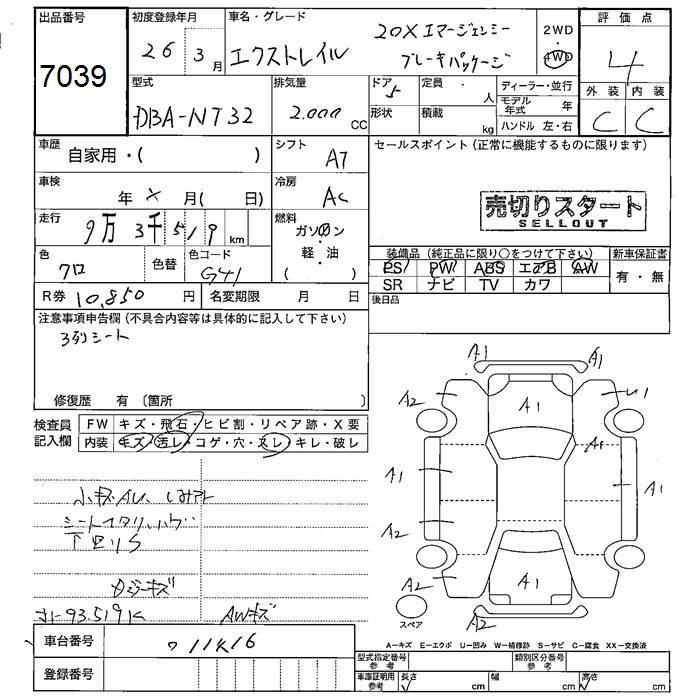 出品番号
7039
初度登録年月
26 3月
車名・グレード
エクストレイル
20X エマージェンシー
ブレーキパッケージ
2WD
・
4WD
評価点
4
外装 内装
C C
型式
DBA-NT32
排気量
2.000 CC
ドア 5
形状
定員 人
積載 kg
ディーラー・並行
モデル年式 年
ハンドル 左・右
車歴
自家用・( )
シフト
AT
セールスポイント(正常に機能するものに限ります)
売切りスタート
SELLOUT
車検
年 × 月( 日)
冷房
AC
走行
9万 3千 519 km
燃料
ガソリン
・
軽油
( )
色
クロ
色替
色コード
G41
装備品(純正品に限り○をつけて下さい)
PS PW ABS エアB AW
SR ナビ TV カワ
新車保証書
有・無
R券 10,850 円
名変期限 月 日
後日品
注意事項申告欄(不具合内容等は具体的に記入して下さい)
3列シート
修復歴 有〔箇所 〕
検査員記入欄
FW キズ・飛石・ヒビ割・リペア跡・X要
内装 キズ・汚レ・コゲ・穴・スレ・キレ・破レ
小キズAU、
シート
キズ
オ-93.519K
AWキズ
A1 A1
A2 A1
A1 A1
A1
A2
A2 A1
A2
スペア
A−キズ E−エクボ U−凹み W−補修跡 S−サビ C−腐食 XX−交換済
車台番号
登録番号
型式指定番号参考
類別区分番号参考
車庫証明用参考
長さ cm 幅 cm 高さ cm